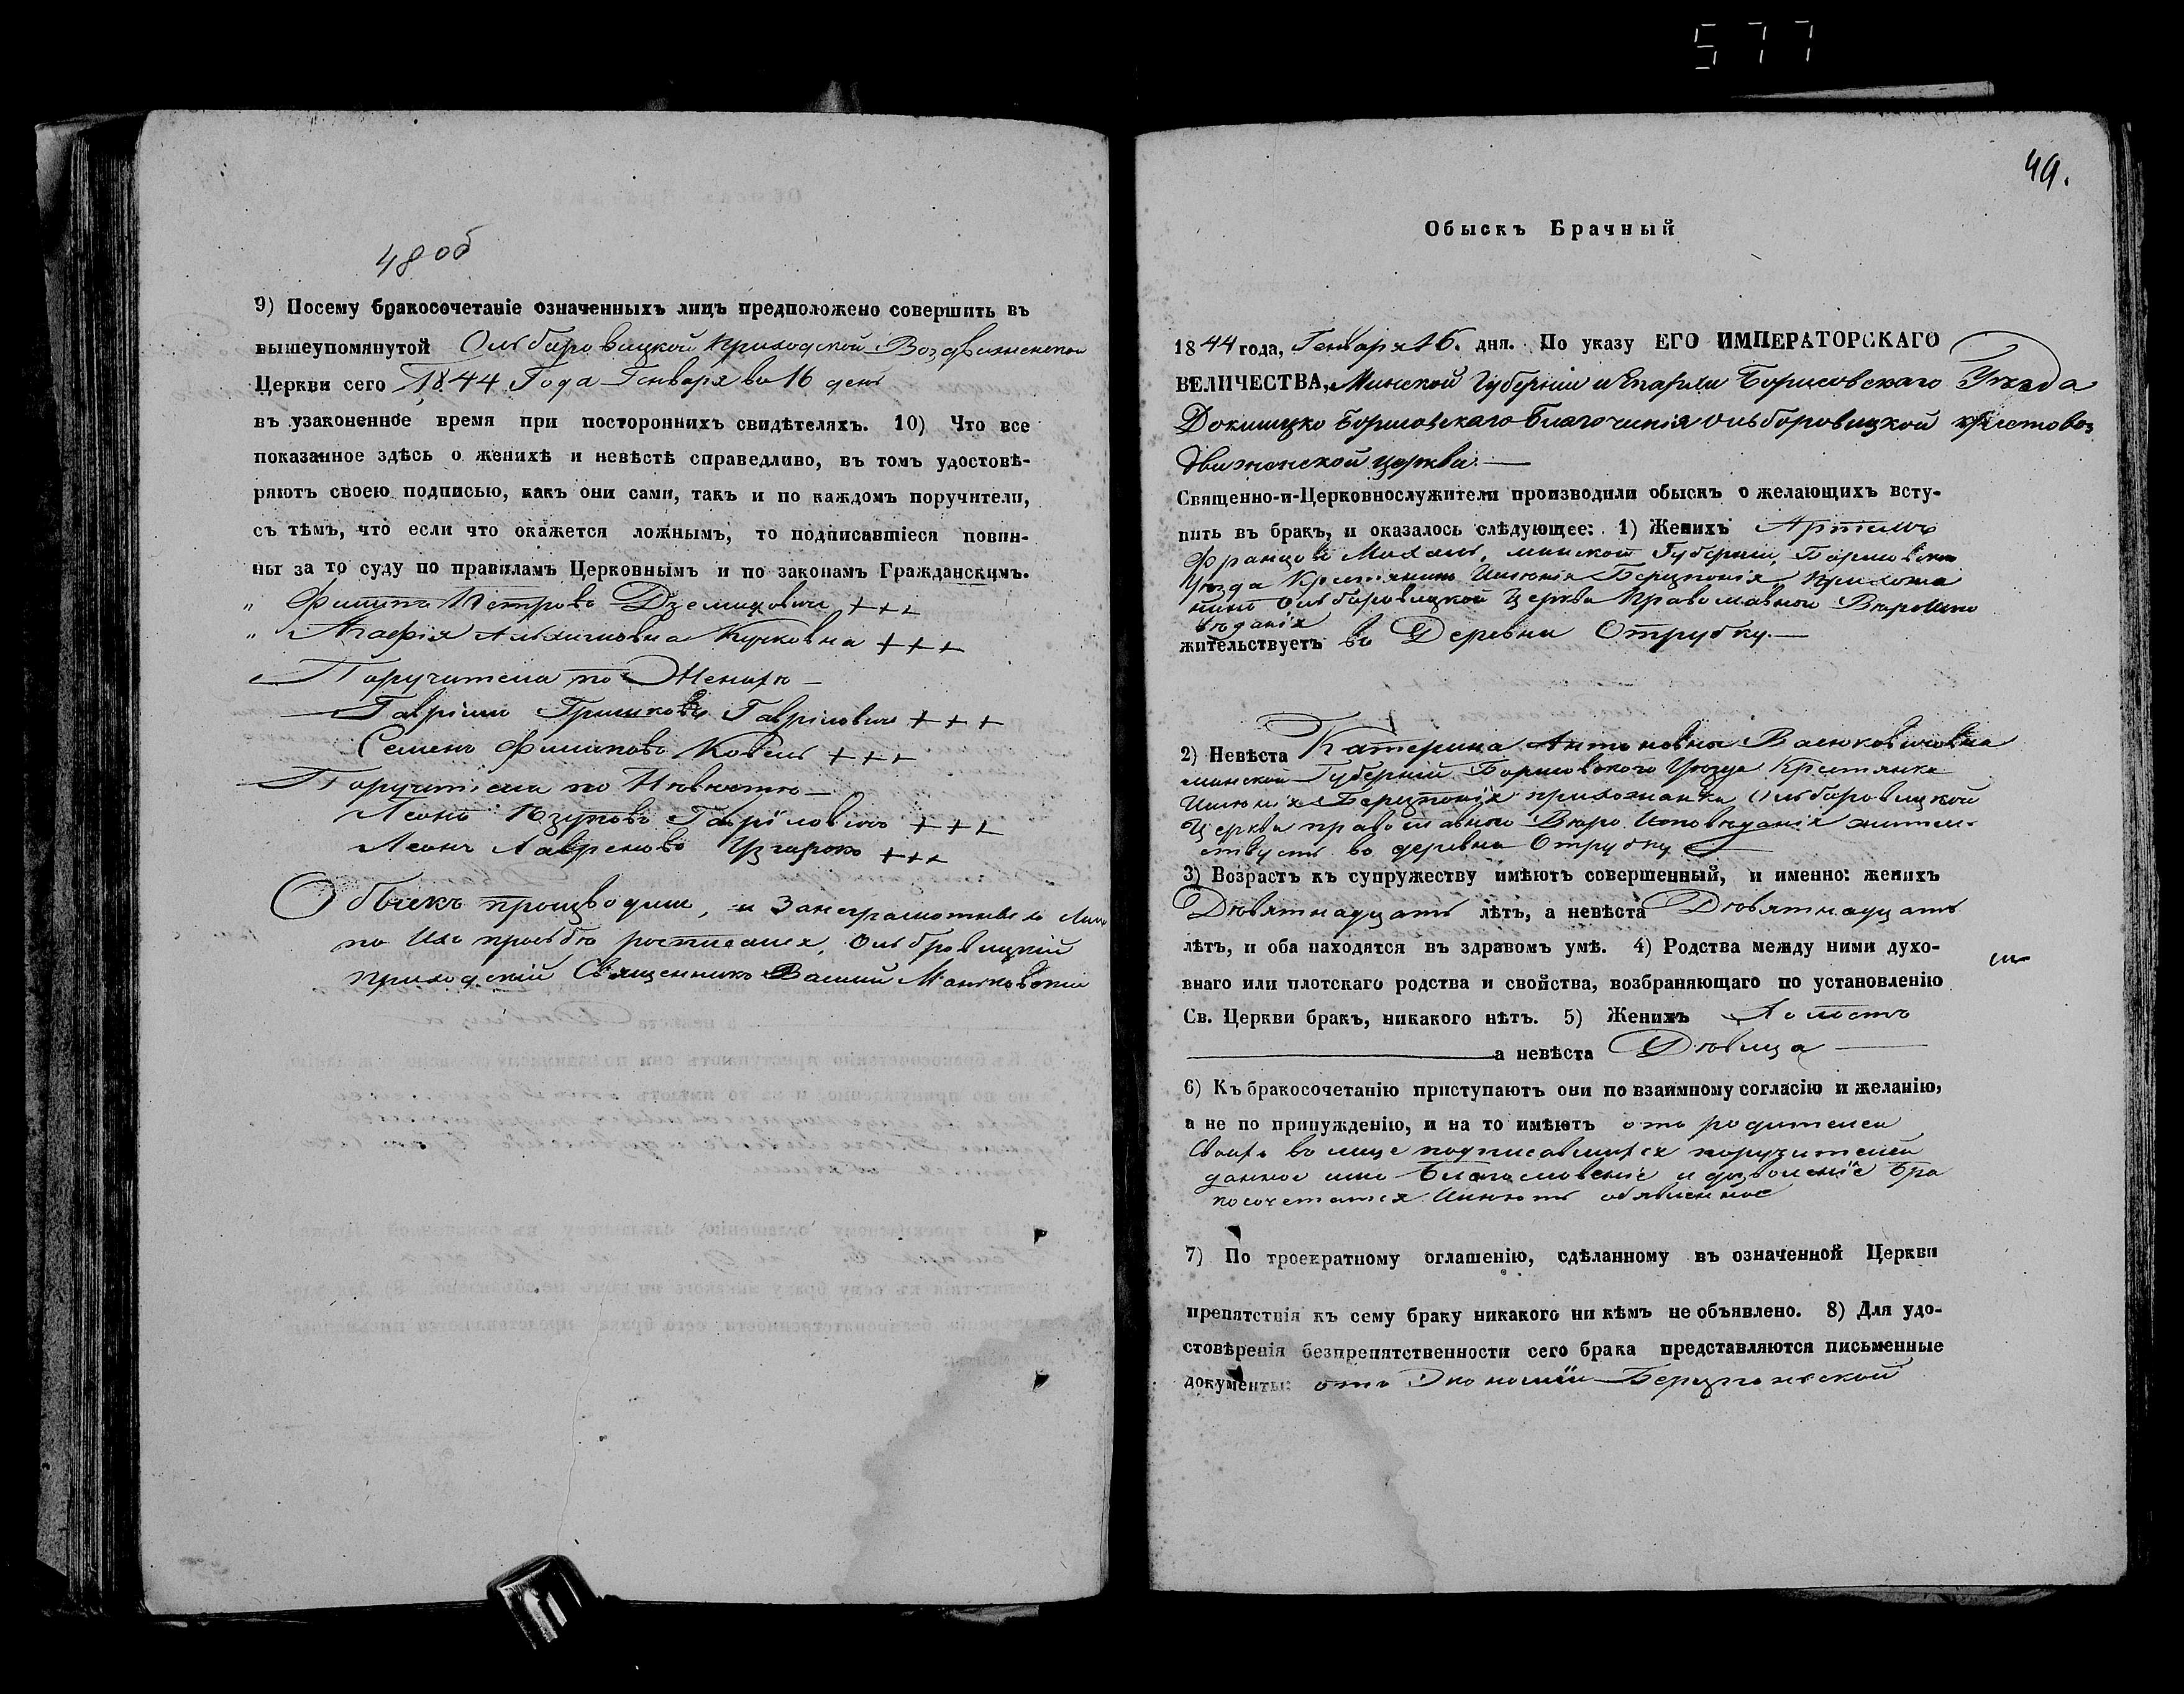 577
48 об
9) Посему бракосочетаніе означенныхъ лицъ предположено совершить въ
вышеупомянутой Ольборовицкой Приходской Воздвиженской
Церкви сего 1844 Года Генваря въ 16 день
въ узаконенное время при постороннихъ свидѣтеляхъ. 10) Что все
показанное здѣсь о женихѣ и невѣстѣ справедливо, въ томъ удостовѣ-
ряютъ своею подписью, какъ они сами, такъ и по каждомъ поручители,
съ тѣмъ, что если что окажется ложнымъ, то подписавшіеся повин-
ны за то суду по правиламъ Церковнымъ и по законамъ Гражданскимъ.
" Филипъ Петровъ +++
" Агафія Кучковна +++
Поручители по Женихѣ —
Гавріилъ Гришковъ Гавріловичъ +++
Семенъ Филиповъ Ковель +++
Поручители по Нѣвѣстѣ —
Леонъ Гаврїловичъ +++
Леонъ Лавреновъ +++
Обыскъ производилъ, и За неграмотныхъ
по Ихъ прозьбѣ росписался, Ольбровицкій
приходскій Священникъ Василій
49.
Обыскъ Брачный
1844 года, Генваря 16. дня. По указу ЕГО ИМПЕРАТОРСКАГО
ВЕЛИЧЕСТВА, Минской Губерніи и Епархіи Борисовскаго Уѣзда
Докшицко Борисовскаго Благочинія Ольборовицкой Крестовоз
движенской церкви. —
Священно-и-Церковнослужители производили обыскъ о желающихъ всту-
пить въ бракъ, и оказалось слѣдующее: 1) Женихъ Артимъ
Францовъ Михаль, минской Губерніи, Борисовского
Уѣзда Крестьянинъ Имѣнія Березконія, Прихожа
нинъ Ольборовицкой Церкви Православнои
вѣданія
жительствуетъ въ Деревни Отрубку. —
2) Невѣста Катерина Антоновна Васюковичовна
минской Губерній Борисовского Уѣзда Крестянка
Имѣнія прихожанка Ольборовицкой
Церкви православного Исповѣданія жител-
ствуетъ въ деревни Отрубку
3) Возрастъ къ супружеству имѣютъ совершенный, и именно: женихъ
Дѣвятнадцать лѣтъ, а невѣста Дѣвятнадцать
лѣтъ, и оба находятся въ здравомъ умѣ. 4) Родства между ними духо-
внаго или плотскаго родства и свойства, возбраняющаго по установленію
Св. Церкви бракъ, никакого нѣтъ. 5) Женихъ Холостъ
а невѣста Дѣвица
6) Къ бракосочетанію приступаютъ они по взаимному согласію и желанію,
а не по принужденію, и на то имѣютъ отъ родителей
своихъ въ лице подписавшихся поручителей
данное имъ Благословеніе и дозволенїе Бра
косочетатся Имѣютъ обявленное
7) По троекратному оглашенію, сдѣланному въ означенной Церкви
препятствія къ сему браку никакого ни кѣмъ не объявлено. 8) Для удо-
стовѣренія безпрепятственности сего брака представляются письменные
документы: отъ Экономїи